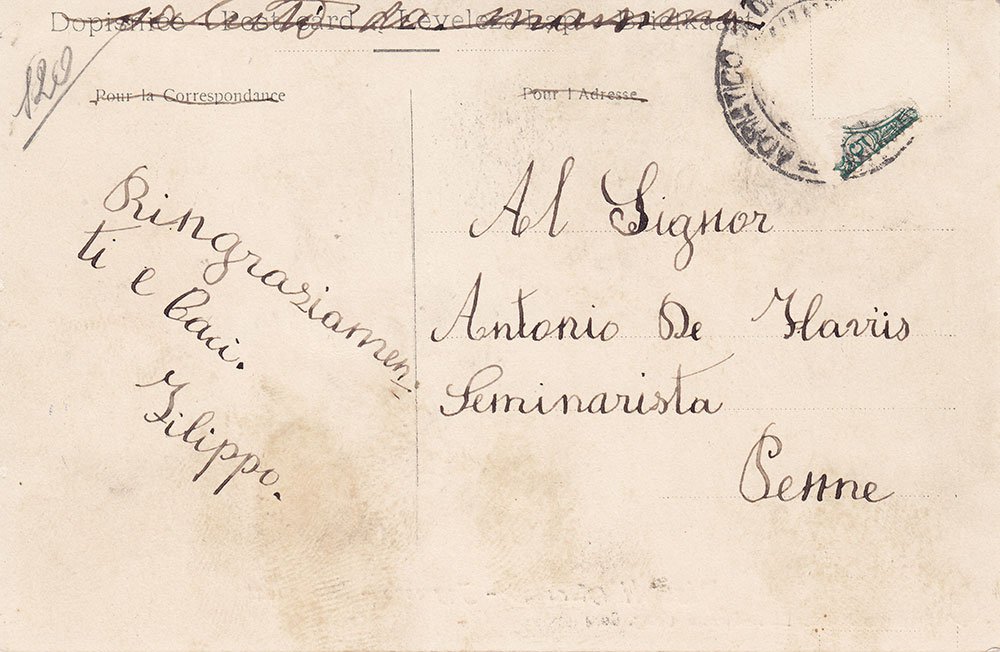 Dopisnice Post-card Levelező-Lap Briefkaart
120
Pour la Correspondance
Pour l'Adresse
ADRIATICO
Ringraziamen-
ti e baci.
Filippo.
Al Signor
Antonio De Flaviis
Seminarista
Penne